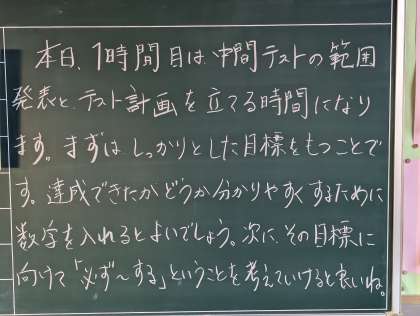 本日、1時間目は、中間テストの範囲
発表と、テスト計画を立てる時間になり
ます。まずは しっかりとした目標をもつことで
す。達成できたかどうか分かりやすくするために
数字を入れるとよいでしょう。次に、その目標に
向けて「必ず〜する」ということを考えていけると良いね。